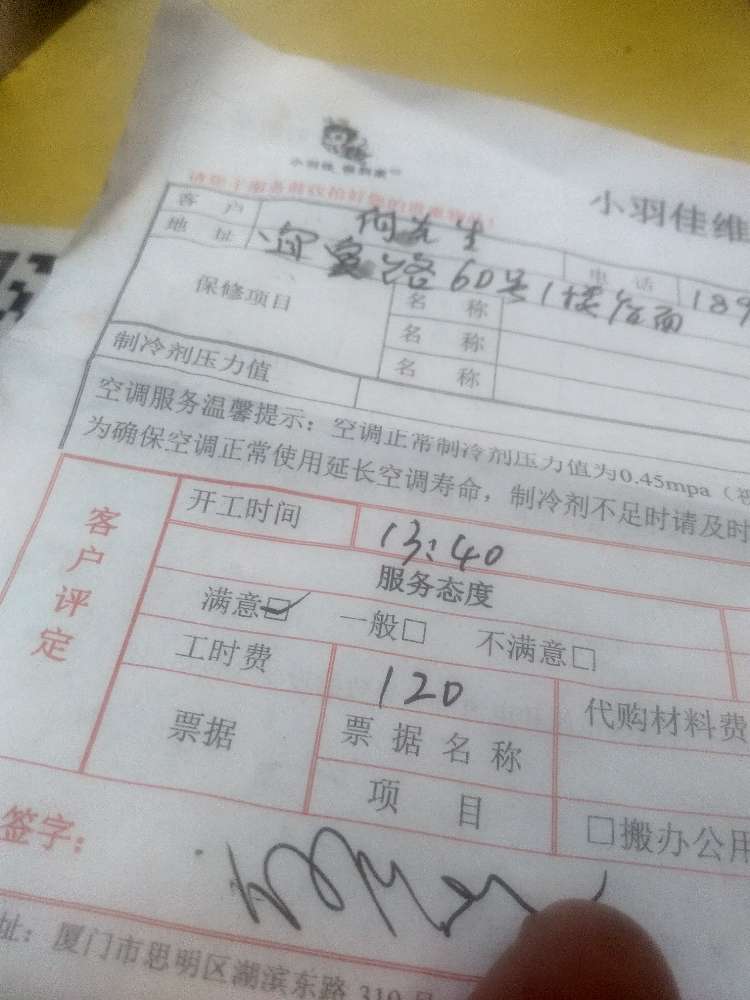 小羽佳
小羽佳维
请您于服务前仪拾好您的贵重物品!
客 户 何先生
电 话 189
地 址 路60号1楼店面
保修项目 名 称
名 称
名 称
制冷剂压力值
空调服务温馨提示：空调正常制冷剂压力值为0.45mpa（
为确保空调正常使用延长空调寿命，制冷剂不足时请及时
客户评定
开工时间 13:40
服务态度
满意☑ 一般□ 不满意□
工时费 120 代购材料费
票据 票据名称
项 目 □搬办公用
签字：
址：厦门市思明区湖滨东路 310号